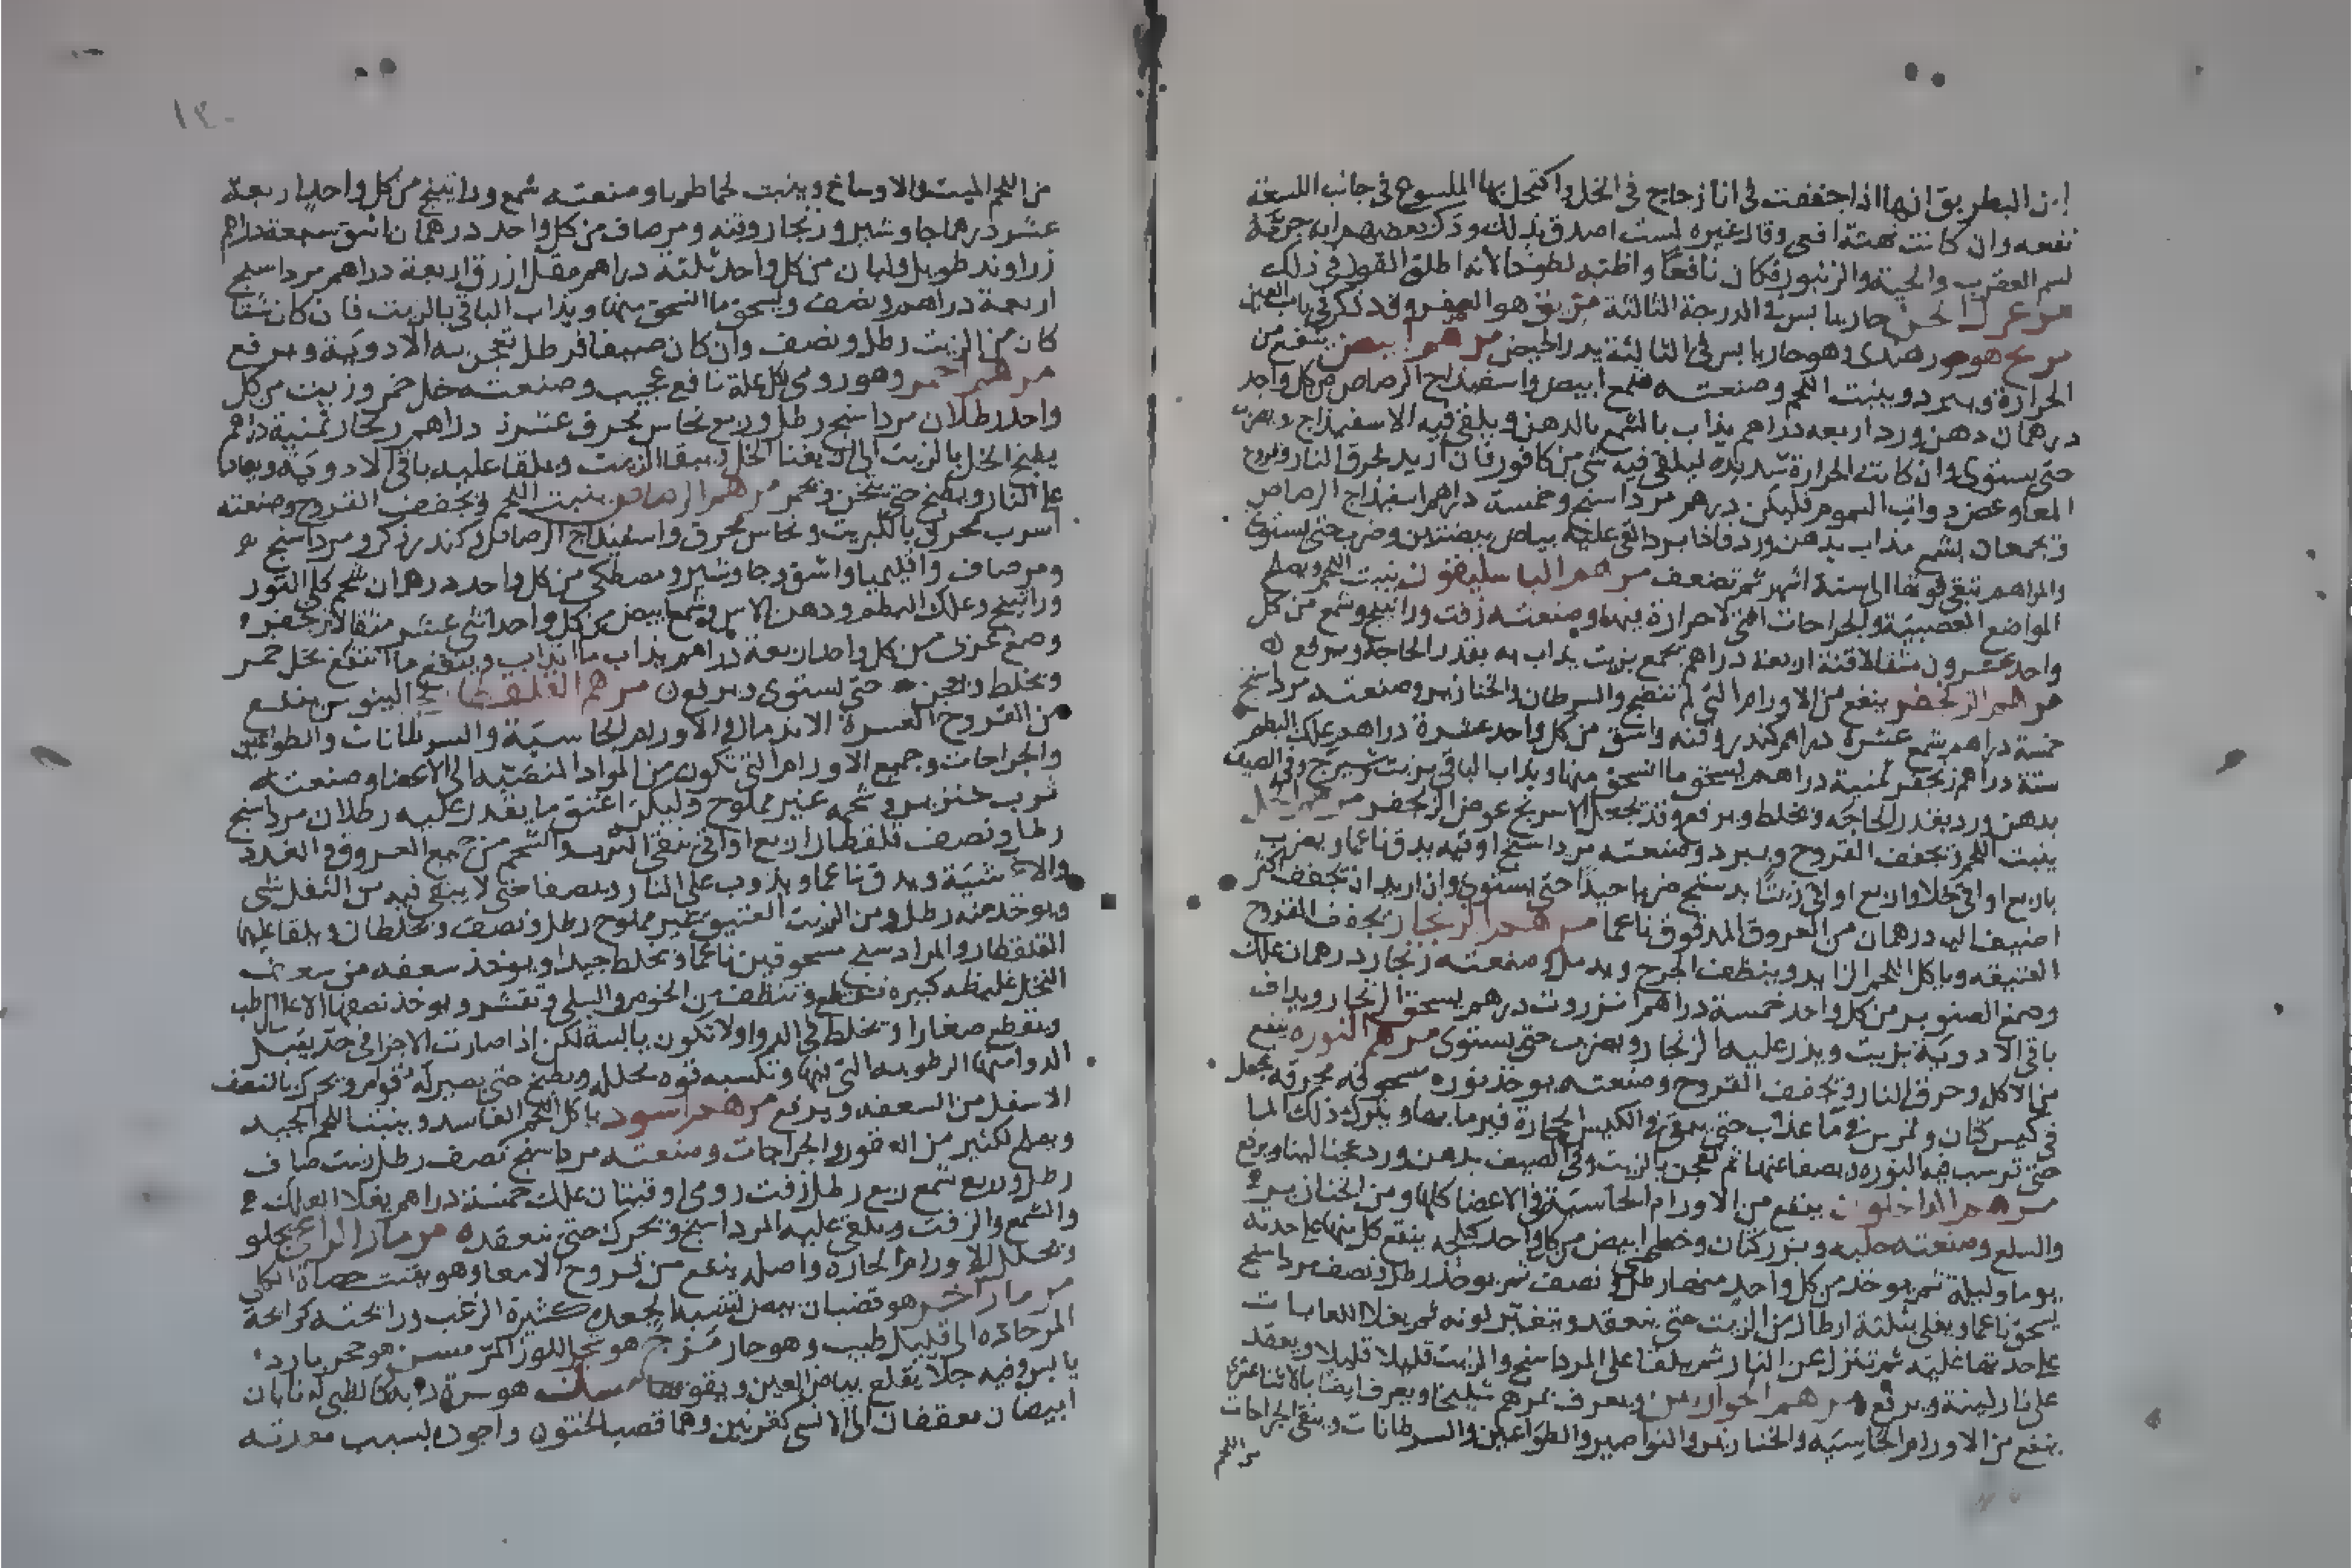 ابن البطريق انها اذا جففت في اناء زجاج في الخل واكتحل بها الملسوع في جانب اللسعة
نفعه وان كانت نهشة افعى وقال غيره لست اصدق بذلك وذكر بعضهم انه جربه
لسم العقرب والحية والزنبور فكان نافعا واظنه لطوخا لانه اطلق القول في ذلك
حار يابس في الدرجة الثالثة مريق هو العصفر وقد ذكر في باب العين
مريح هو هندي وهو حار يابس في الثالثة يدر الحيض مرهم ابيض ينفع من
الحرارة ويبرد وينبت اللحم وصنعته شمع ابيض واسفيداج الرصاص من كل واحد
درهمان دهن ورد اربعه دراهم يذاب بالشمع بالدهن ويلقى فيه الاسفيذاج ويضرب
حتى يستوي وان كانت الحرارة شديدة فيلقى فيه شي من كافور فان اريد لحرق النار وقروح
المعا وعض دواب السموم فليكن درهم مرداسنج وخمسة دراهم اسفيذاج الرصاص
ويجمعان بشمع مذاب بدهن ورد فاذا برد القى عليه بياض بيضتين وضرب حتى يستوى
والمراهم تبقى قوتها الى ستة اشهر ثم تضعف مرهم الباسليقون ينبت اللحم ويصلح
المواضع العصبية والجراحات التي لا حرارة فيها وصنعته زفت وراتينج وشمع من كل
واحد عشرون مثقالا قنة اربعة دراهم تجمع بزيت يذاب به بقدر الحاجة ويرفع
مرهم الزنجفر ينفع من الاورام التي لم تنضج والسرطان والخنازير وصنعته مرداسنج
خمسة دراهم شمع عشرة دراهم كندر وقنه واشق من كل واحد عشرة دراهم علك البطم
ستة دراهم زنجفر ثمنية دراهم يسحق ما انسحق منها ويذاب الباقي بزيت وشيرج وفي الصيف
بدهن ورد بقدر الحاجه ويخلط ويرفع وقد يجعل الاسرنج عوض الزنجفر مرهم الخل
ينبت اللحم ويجفف القروح ويبرد وصنعته مرداسنج اوقيه يدق ناعما ويضرب
باربع اواقي خلا واربع اواقي زيتا بدستج ضربا جيدا حتى يستوي وان اريد ان تجفف اكثر
اضيف اليه درهمان من العروق المدقوق ناعما مرهم الزنجار يجفف القروح
العتيقه وياكل اللحم الزايد وينظف الجرح ويدمل وصنعته زنجار درهمان علك
وصمغ الصنوبر من كل واحد خمسة دراهم انزروت درهم يسحق الزنجار ويداف
باقي الادوية بزيت ويذر عليه الزنجار ويضرب حتى يستوى مرهم النوره ينفع
من الاكل وحرق النار ويجفف القروح وصنعته يوخذ نوره مسحوقه محرقه يجعل
في كيس كتان ويمرس في ما عذب حتى يبقى في الكيس الحجارة فيرما بها ويترك ذلك الما
حتى ترسب فيه النوره ويصفا عنها ثم تعجن بالزيت وفي الصيف بدهن ورد عجنا لينا ويرفع
مرهم الداخليون ينفع من الاورام الجاسية في الاعضا كلها ومن الخنازير
والسلع وصنعته حلبه وبزر كتان وخطمى ابيض من كل واحد كيلجه ينقع كل منها على حدته
يوما وليلة ثم يوخذ من كل واحد منها رطل ونصف ثم يوخذ رطل ونصف مرداسنج
يسحق ناعما ويغلى بثلثة ارطال من الزيت حتى ينعقد ويتغير لونه ثم يغلا اللعابات
على حدتها غليه ثم تنزل عن النار ثم يلقا على المرداسنج والزيت قليلا قليلا ويعقد
على نار لينة ويرفع مرهم الحواريين ويعرف بمرهم شليخا ويعرف ايضا بالاثنا عشري
ينفع من الاورام الجاسيه والخنازير والنواصير والطواعين والسرطانات وينقى الجراحات
من اللحم
١٤٠
من اللحم الميت والاوساخ وينبت لحما طريا وصنعته شمع وراتينج من كل واحد اربعة
عشر درهما جاوشير وزنجار وقنه ومر صاف من كل واحد درهمان اشق سبعة دراهم
زراوند طويل ولبان من كل واحد ثلثة دراهم مقل ازرق اربعة دراهم مرداسنج
اربعة دراهم ونصف ويسحق ما انسحق منها ويذاب الباقي بالزيت فان كان شتا
كان من الزيت رطل ونصف وان كان صيفا فرطل تعجن به الادوية ويرفع
مرهم احمر وهو رومي لكل علة نافع عجيب وصنعته خل خمر وزيت من كل
واحد رطلان مرداسنج رطل وربع نحاس محرق عشرة دراهم زنجار ثمنية دراهم
يطبخ الخل بالزيت الى ان يفنا الخل ويبقا الزيت ويلقا عليه باقي الادوية ويعاد
على النار ويطبخ حتى يثخن ويحمر مرهم الرصاص ينبت اللحم ويجفف القروح وصنعته
اسرب محرق بالكبريت ونحاس محرق واسفيداج الرصاص وكندر ذكر ومرداسنج
ومر صاف واقليميا واشق وجاوشير ومصطكى من كل واحد درهمان شحم كلى الثور
وراتينج وعلك البطم ودهن الاس وشمع ابيض من كل واحد اثنى عشر مثقالا زنجفر و
وصمغ محرق من كل واحد اربعة دراهم يذاب ما انذاب وينقع ما انتقع بخل خمر
ويخلط ويعجن حتى يستوى ويرفع مرهم القلقطار لجالينوس ينفع
من القروح العسرة الاندمال والاورام الجاسية والسرطانات والطواعين
والجراحات وجميع الاورام التي تتكون من المواد المنصبه الى الاعضا وصنعته
ثرب خنزير وشحمه غير مملوح وليكن اعتق ما يقدر عليه رطلان مرداسنج
رطل ونصف قلقطار اربع اواقي ينقى الثرب والشحم من جميع العروق والغدد
والاغشية ويدق ناعما ويذوب على النار ويصفا حتى لا يبقى فيه من الثفل شى
ويوخذ منه رطل ومن الزيت العتيق غير مملوح رطل ونصف ويخلطان ويلقا عليها
القلقطار والمرداسنج مسحوقين ناعما ويخلط جيدا ويوخذ سعفه من سعف
النخل غليظه كبيره تقطع وتنظف من الخوص والسلى وتقشر ويوخذ نصفها الاعلا الرطب
ويقطع صغارا ويخلط في الدوا ولا تكون يابسة لكن اذا صارت الاجزا في حد يقبل
الدوا منها الرطوبه التي فيها وتكسبه قوه محلله ويطبخ حتى يصير له قوام ويحرك بالنصف
الاسفل من السعفه ويرفع مرهم اسود ياكل اللحم الفاسد وينبت اللحم الجيد
ويصلح لكثير من العقور والجراحات وصنعته مرداسنج نصف رطل زيت صاف
رطل وربع شمع ربع رطل زفت رومي اوقيتان علك خمسة دراهم يغلا العلك
والشمع والزفت ويلقى عليه المرداسنج ويحرك حتى ينعقد مرماز الراعي يجلو
ويحلل الاورام الحاره واصله ينفع من قروح الامعا وهو يفتت حصاة الكلى
مرماز اخر هو قضبان بيض تشبه الجعده كثيرة الزغب ورائحته كرائحة
المر حاده الى قليل طيب وهو حار مزج هو شجر اللوز المر مسن هو حجر بارد
يابس وفيه جلا يقلع بياض العين ويقويها مسك هو سرة دابه كالظبى له نابان
ابيضان معقفان الى الانسى كقرنين وهما قصب الخنو واجوده بسبب معدنه